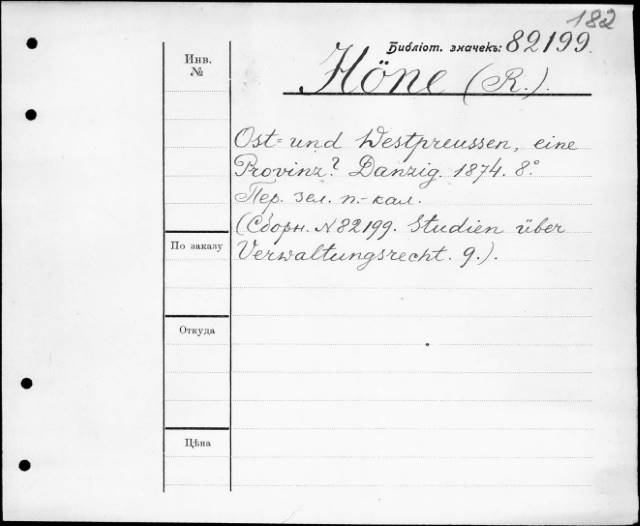 182
Библіот. значекъ: 82199.
Инв.
№
Höne (R.).
Ost= und Westpreussen, eine
Provinz? Danzig. 1874. 8°
Пер. зел. п.-кал.
(Сборн. №82199. Studien über
Verwaltungsrecht. 9.).
По заказу
Откуда
Цѣна